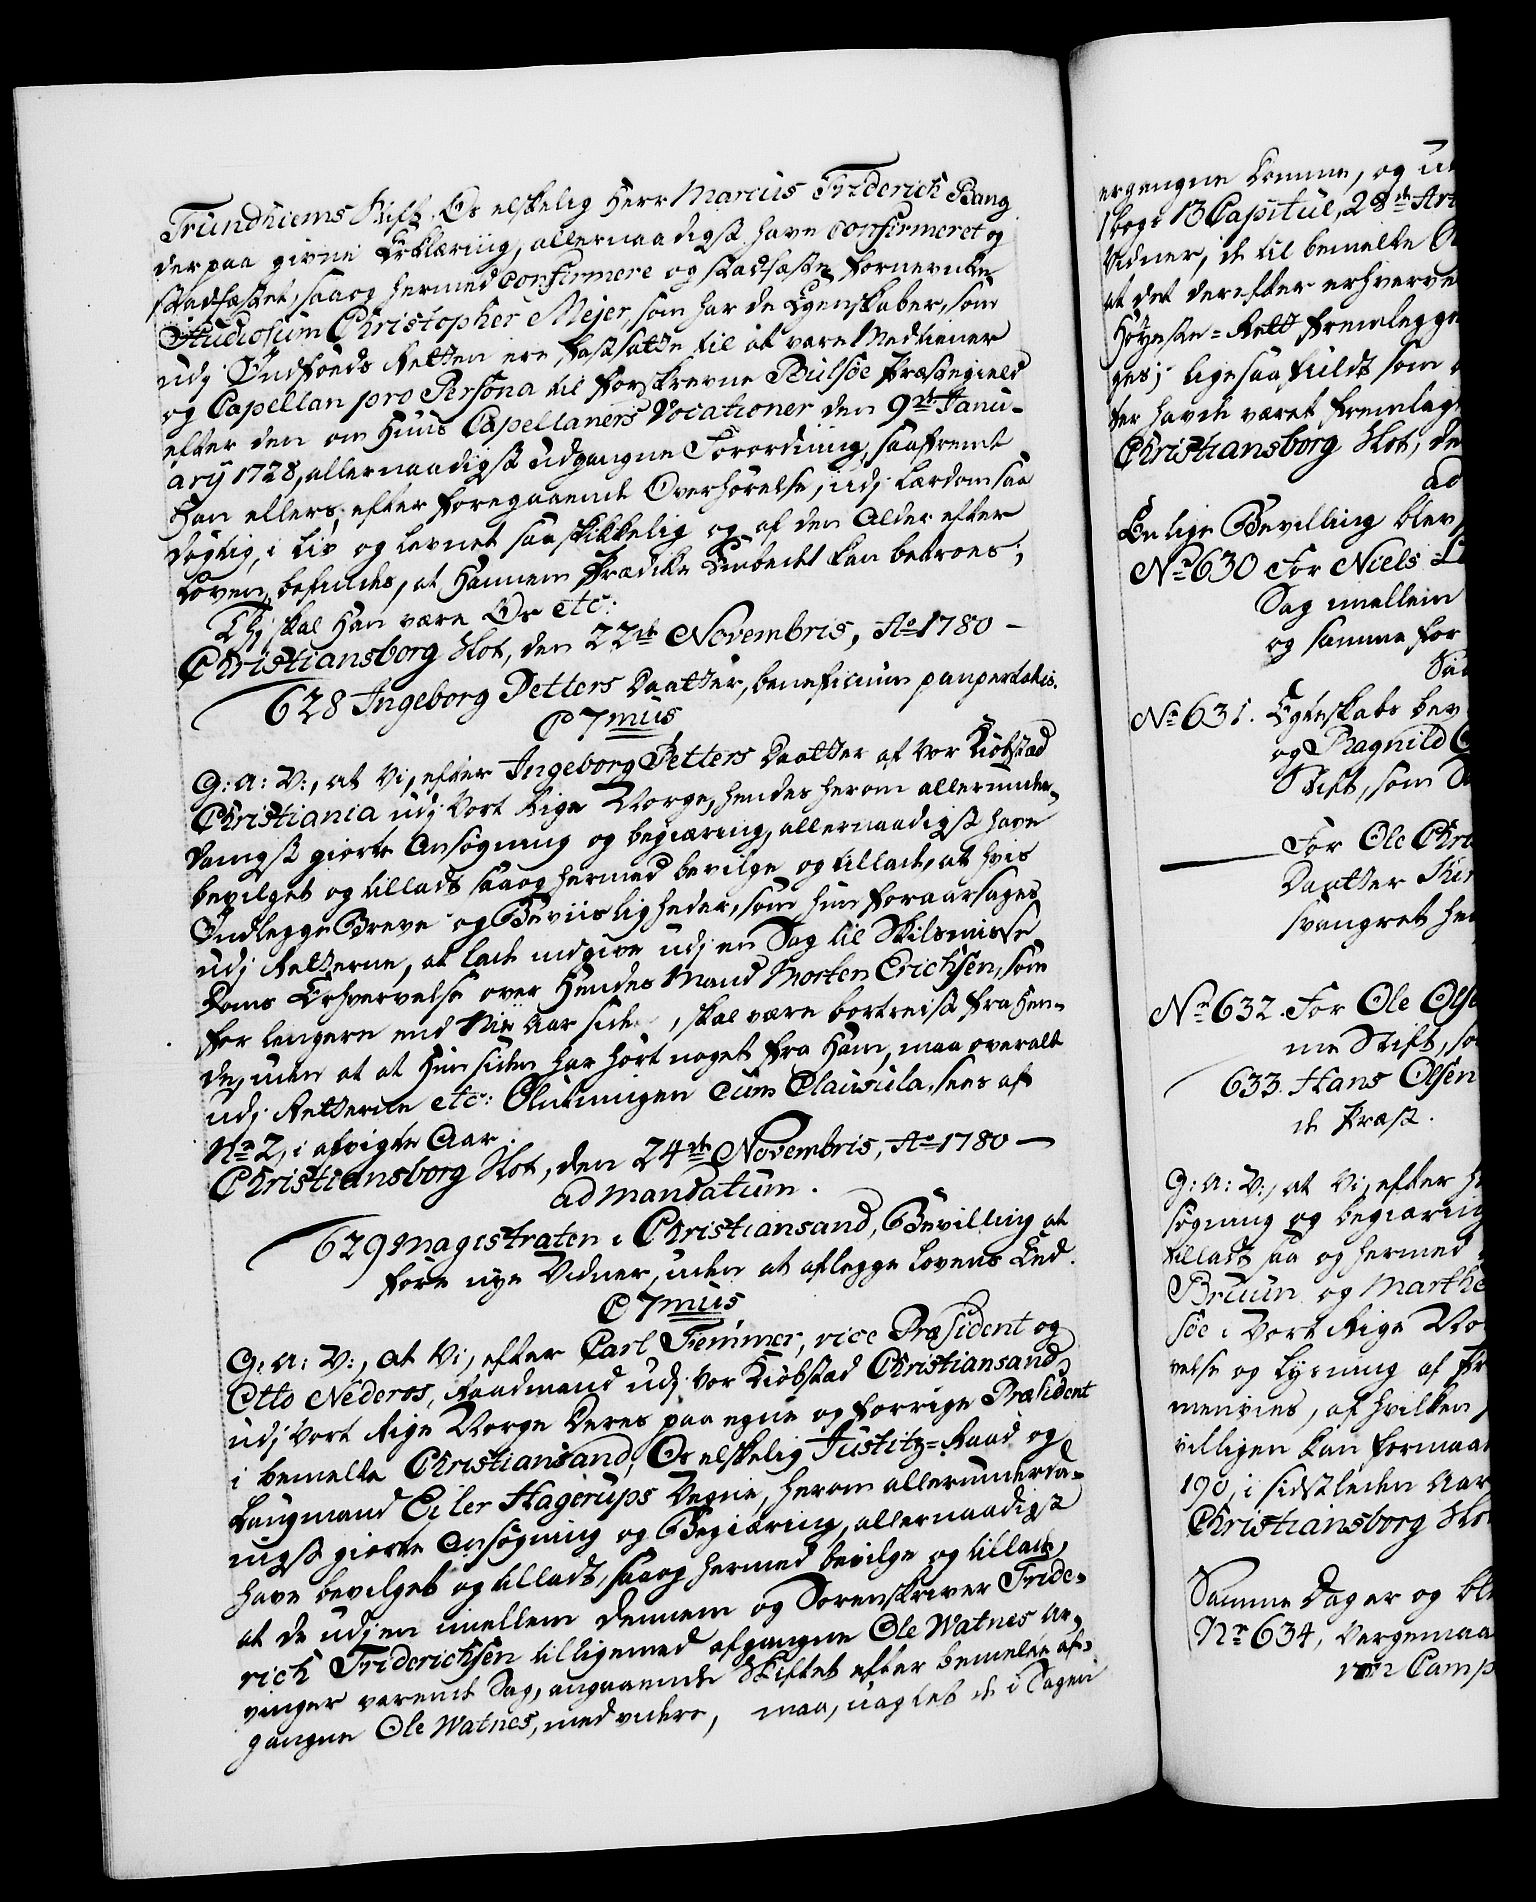 Trundhiems Stift Os elskelig Herr Marcus Friderich Bang
derpaa givne Erklæring, allernaadigst have confirmeret og
stadfæstet, saa og hermed confirmere og stadfæste fornevnte
Studiosum Christopher Mejer, som har de Egenskaber, som
udj Indføds Retten ere fastsatte til at være Medtiener
og Capellan pro Persona til forskrevne Bulsøe Præstegield
efter den om Huus Capellaners Vocationer den 9de Janu-
arij 1728, allernaadigst udgangne Forordning, saafremt
Han ellers, efter foregaaende Overhørelse, udj Lærdom saa
dygtig, i Liv og Levnet saa skikkelig og af den Alder efter
Loven, befindes, at Hannem Prædike Embedet kan betroes;
Thj skal Han være Os etc:
Christiansborg Slot, den 22de Novembris, Ao 1780 -
628 Ingeborg Petters Daatter, beneficium paupertatis.
C 7mus
G: A: V:, at Vi, efter Ingeborg Petters Daatter af Vor Kiøbstæd
Christiania udj Vort Rige Norge, hendes herom allerunder-
danigst giorte Ansøgning og begiæring, allernaadigst have
bevilget og tilladt, saa og hermed bevilge og tillade, at hvis
Indlegge Breve og Beviisligheder, som hun foraarsages
udj Retterne, at lade indgive udj en Sag til Skilsmisse
Doms Erhvervelse over Hendes Mand Morten Erichsen, som
for lengere end Nie Aar siden, skal være bortreist fra Hen-
de, uden at at Hun siden har hørt noget fra Ham, maa overalt
udj Retterne etc: Slutningen cum Clausula, sees af
No 2, i afvigte Aar.
Christiansborg Slot, den 24de Novembris, Ao 1780 -
ad mandatum.
629 Magistraten i Christiansand, Bevilling at
føre nye Vidner, uden at aflegge Lovens Eed.
C 7mus
G: A: V:, at Vi, efter Carl Femmer, vice Præsident og
Otto Nideros, Raadmand udj Vor Kiøbstad Christiansand
udj Vort Rige Norge Deres paa egne og forrige Præsident
i bemelte Christiansand, Os elskelig Justitz-Raad og
Laugmand Eiler Hagerups Vegne, herom allerunderda-
nigst giorte Ansøgning og Begiæring, allernaadigst
have bevilget og tilladt, saa og hermed bevilge og tillade,
at de udj en imellem dennem og Sorenskriver Fride-
rich Friderichsen tilligemed afgangne Ole Watnes Ar-
vinger værende Sag, angaaende Skiftet efter bemelte af-
gangne Ole Watnes, med videre, maa, uagtet de i Sagen
ergangne Domme, og
1 bogs 13 Capitul, 28de
Vidner, de til bemelte
at det derefter
Høyeste-Rett fremlegge
ges; ligesaa fuldt som
før havde været fremlagt
Christiansborg Slot, de
ad
En lige Bevilling blev
No 630 For Niels
Sag imellem
og samme for
No 631. Egteskabs bev
og Ragnild
Stift, som
For Ole Chri
Daatter
svangret
No 632. For Ole Olse
me Stift, so
633. Hans Olsen
de Præst.
G: A: V:, at Vi, efter
søgning og begiæring
tilladt saa og hermed
Bruun og Marthe
søe i Vort Rige No
velse og Lysning af
menvies, af hvilken
villigen kan formaa
190, i sidstleden Aar
Christiansborg Slot
Samme Dag er og ble
No 634, Værgemaa
von Camp